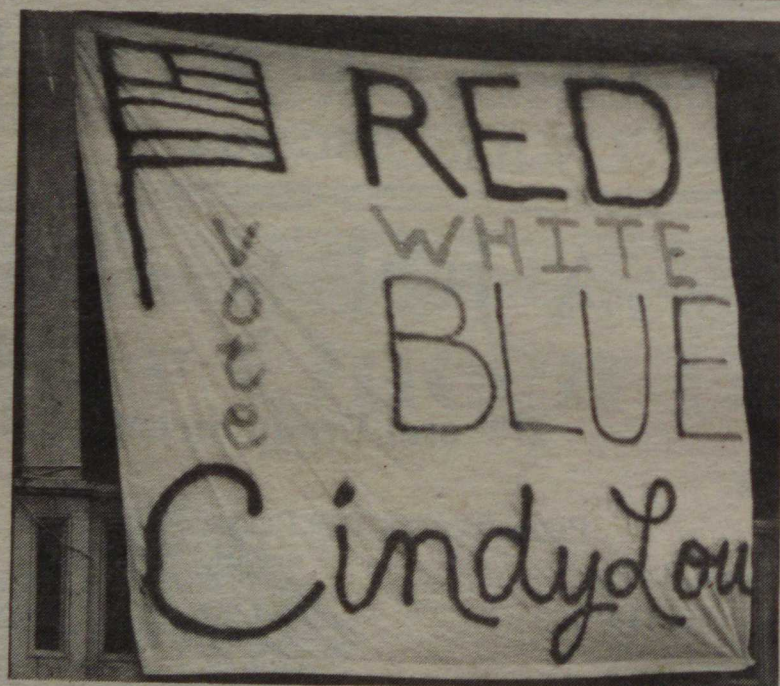 RED
WHITE
BLUE
Cindy Lou